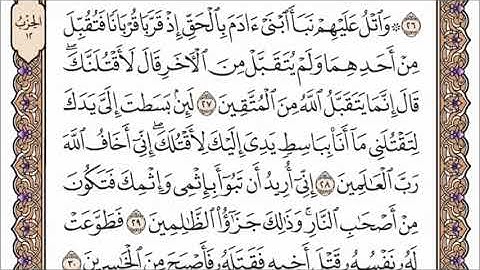 الحزب
١٢
٢٦ ۞ وَٱتۡلُ عَلَيۡهِمۡ نَبَأَ ٱبۡنَيۡ ءَادَمَ بِٱلۡحَقِّ إِذۡ قَرَّبَا قُرۡبَانٗا فَتُقُبِّلَ
مِنۡ أَحَدِهِمَا وَلَمۡ يُتَقَبَّلۡ مِنَ ٱلۡأٓخَرِ قَالَ لَأَقۡتُلَنَّكَۖ
قَالَ إِنَّمَا يَتَقَبَّلُ ٱللَّهُ مِنَ ٱلۡمُتَّقِينَ ٢٧ لَئِنۢ بَسَطتَ إِلَيَّ يَدَكَ
لِتَقۡتُلَنِي مَآ أَنَا۠ بِبَاسِطٖ يَدِيَ إِلَيۡكَ لِأَقۡتُلَكَۖ إِنِّيٓ أَخَافُ ٱللَّهَ
رَبَّ ٱلۡعَٰلَمِينَ ٢٨ إِنِّيٓ أُرِيدُ أَن تَبُوٓأَ بِإِثۡمِي وَإِثۡمِكَ فَتَكُونَ
مِنۡ أَصۡحَٰبِ ٱلنَّارِۚ وَذَٰلِكَ جَزَٰٓؤُاْ ٱلظَّٰلِمِينَ ٢٩ فَطَوَّعَتۡ
لَهُۥ نَفۡسُهُۥ قَتۡلَ أَخِيهِ فَقَتَلَهُۥ فَأَصۡبَحَ مِنَ ٱلۡخَٰسِرِينَ ٣٠